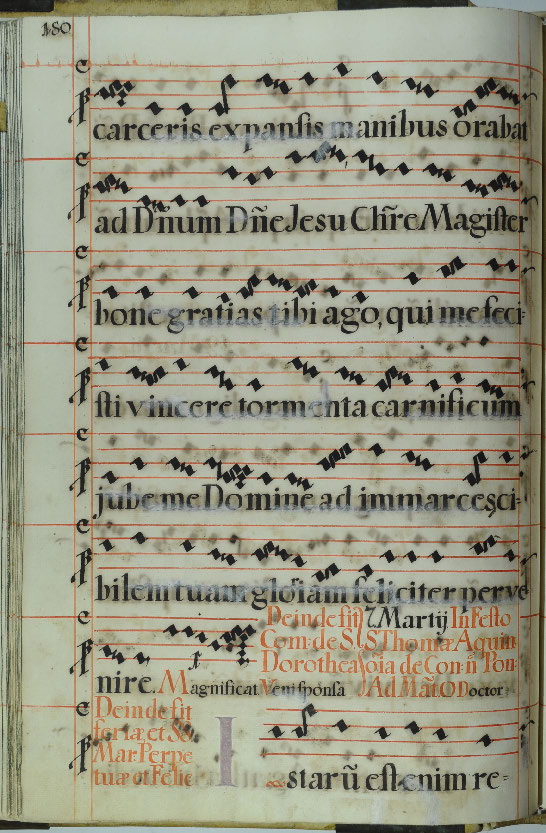 180
carceris expansis manibus orabat
ad Dñum Dñe Jesu Chr̃e Magister
bone gratias tibi ago, qui me feci-
sti vincere tormenta carnificum
jube me Domine ad immarcesci-
bilem tuam gloriam feliciter perve
nire. Magnificat Veni sponsa
Dein de fit
Com: de S.
Dorotheæ
7. Martij In Festo
S Thomæ Aquin
de Con: ñ Pon
Ad Mat. O Doctor
Dein de fit
et
Mar Perpe
tuæ et Felic
Istarũ est enim re-